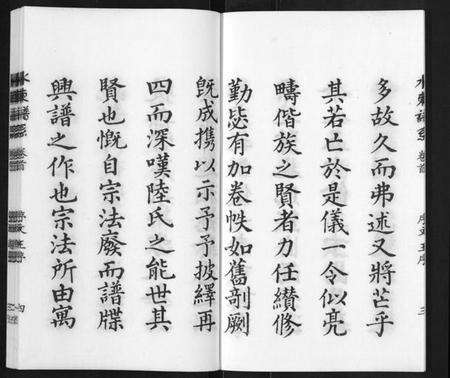 多故久而弗述又將芒乎
其若亡於是儀一令似亮
疇偕族之賢者力任纘修
勤毖有加卷帙如舊剞劂
既成携以示予予披繹再
四而深嘆陸氏之能世其
賢也慨自宗法廢而譜牒
興譜之作也宗法所由寓